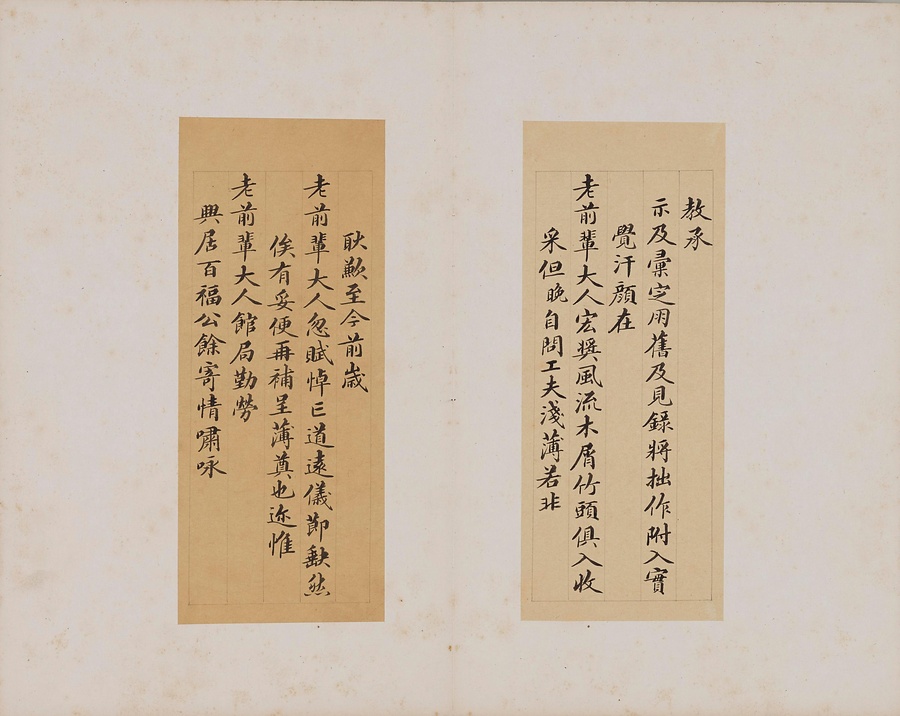 教承
示及彙定用舊及見錄將拙作附入實
覺汗顏在
老前輩大人宏奬風流木屑竹頭俱入收
采但晚自問工夫淺薄若非
耿歉至今前歲
老前輩大人忽賦悼亡道遠儀節缺然
俟有妥便再補呈薄奠也迩惟
老前輩大人館局勤勞
興居百福公餘寄情嘯咏